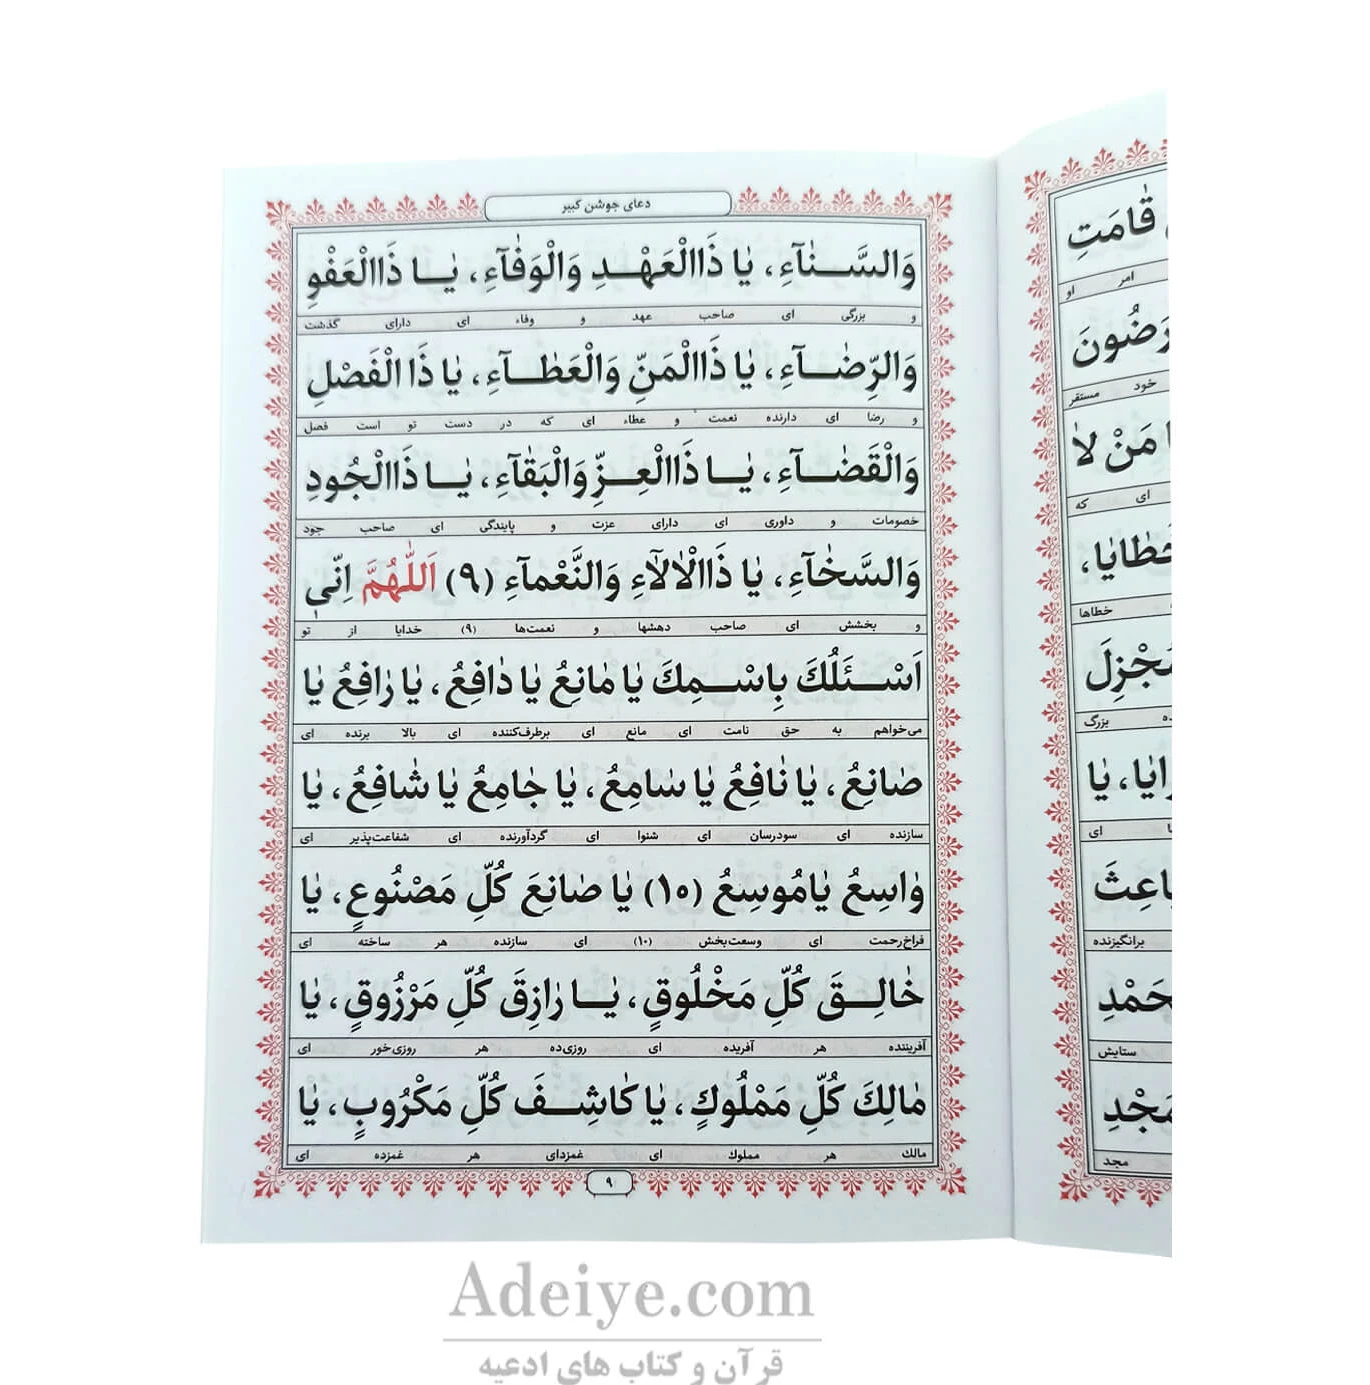 دعای جوشن کبیر
وَالسَّنٰآءِ، یٰا ذَاالْعَهْدِ وَالْوَفٰآءِ، یٰا ذَاالْعَفْوِ
و بزرگی ای صاحب عهد و وفاء ای دارای گذشت
وَالرِّضٰآءِ، یٰا ذَاالْمَنِّ وَالْعَطٰآءِ، یٰا ذَا الْفَصْلِ
و رضا ای دارنده نعمت و عطاء ای که در دست تو است فصل
وَالْقَضٰآءِ، یٰا ذَاالْعِزِّ وَالْبَقٰآءِ، یٰا ذَاالْجُودِ
خصومات و داوری ای دارای عزت و پایندگی ای صاحب جود
وَالسَّخٰآءِ، یٰا ذَاالْاٰلٰآءِ وَالنَّعْمآءِ (۹) اَللّٰهُمَّ اِنّی
و بخشش ای صاحب دهشها و نعمت‌ها (۹) خدایا از تو
اَسْئَلُكَ بِاسْمِكَ یٰا مٰانِعُ یٰا دٰافِعُ، یٰا رٰافِعُ یٰا
می‌خواهم به حق نامت ای مانع ای برطرف‌کننده ای بالا برنده ای
صٰانِعُ، یٰا نٰافِعُ یٰا سٰامِعُ، یٰا جٰامِعُ یٰا شٰافِعُ، یٰا
سازنده ای سودرسان ای شنوا ای گردآورنده ای شفاعت‌پذیر ای
وٰاسِعُ یٰامُوسِعُ (۱۰) یٰا صٰانِعَ كُلِّ مَصْنُوعٍ، یٰا
فراخ‌رحمت ای وسعت‌بخش (۱۰) ای سازنده هر ساخته ای
خٰالِقَ كُلِّ مَخْلُوقٍ، یٰا رٰازِقَ كُلِّ مَرْزُوقٍ، یٰا
آفریننده هر آفریده ای روزی‌ده هر روزی‌خور ای
مٰالِكَ كُلِّ مَمْلُوكٍ، یٰا كٰاشِفَ كُلِّ مَكْرُوبٍ، یٰا
مالك هر مملوك ای غمزدای هر غمزده ای
۹
قٰامَتِ
امر او
خود مستقر
مَنْ لاٰ
ای که
خطاها
بزرگ
یٰا
ای
برانگیزنده
ستایش
مجد
Adeiye.com
قرآن و کتاب های ادعیه